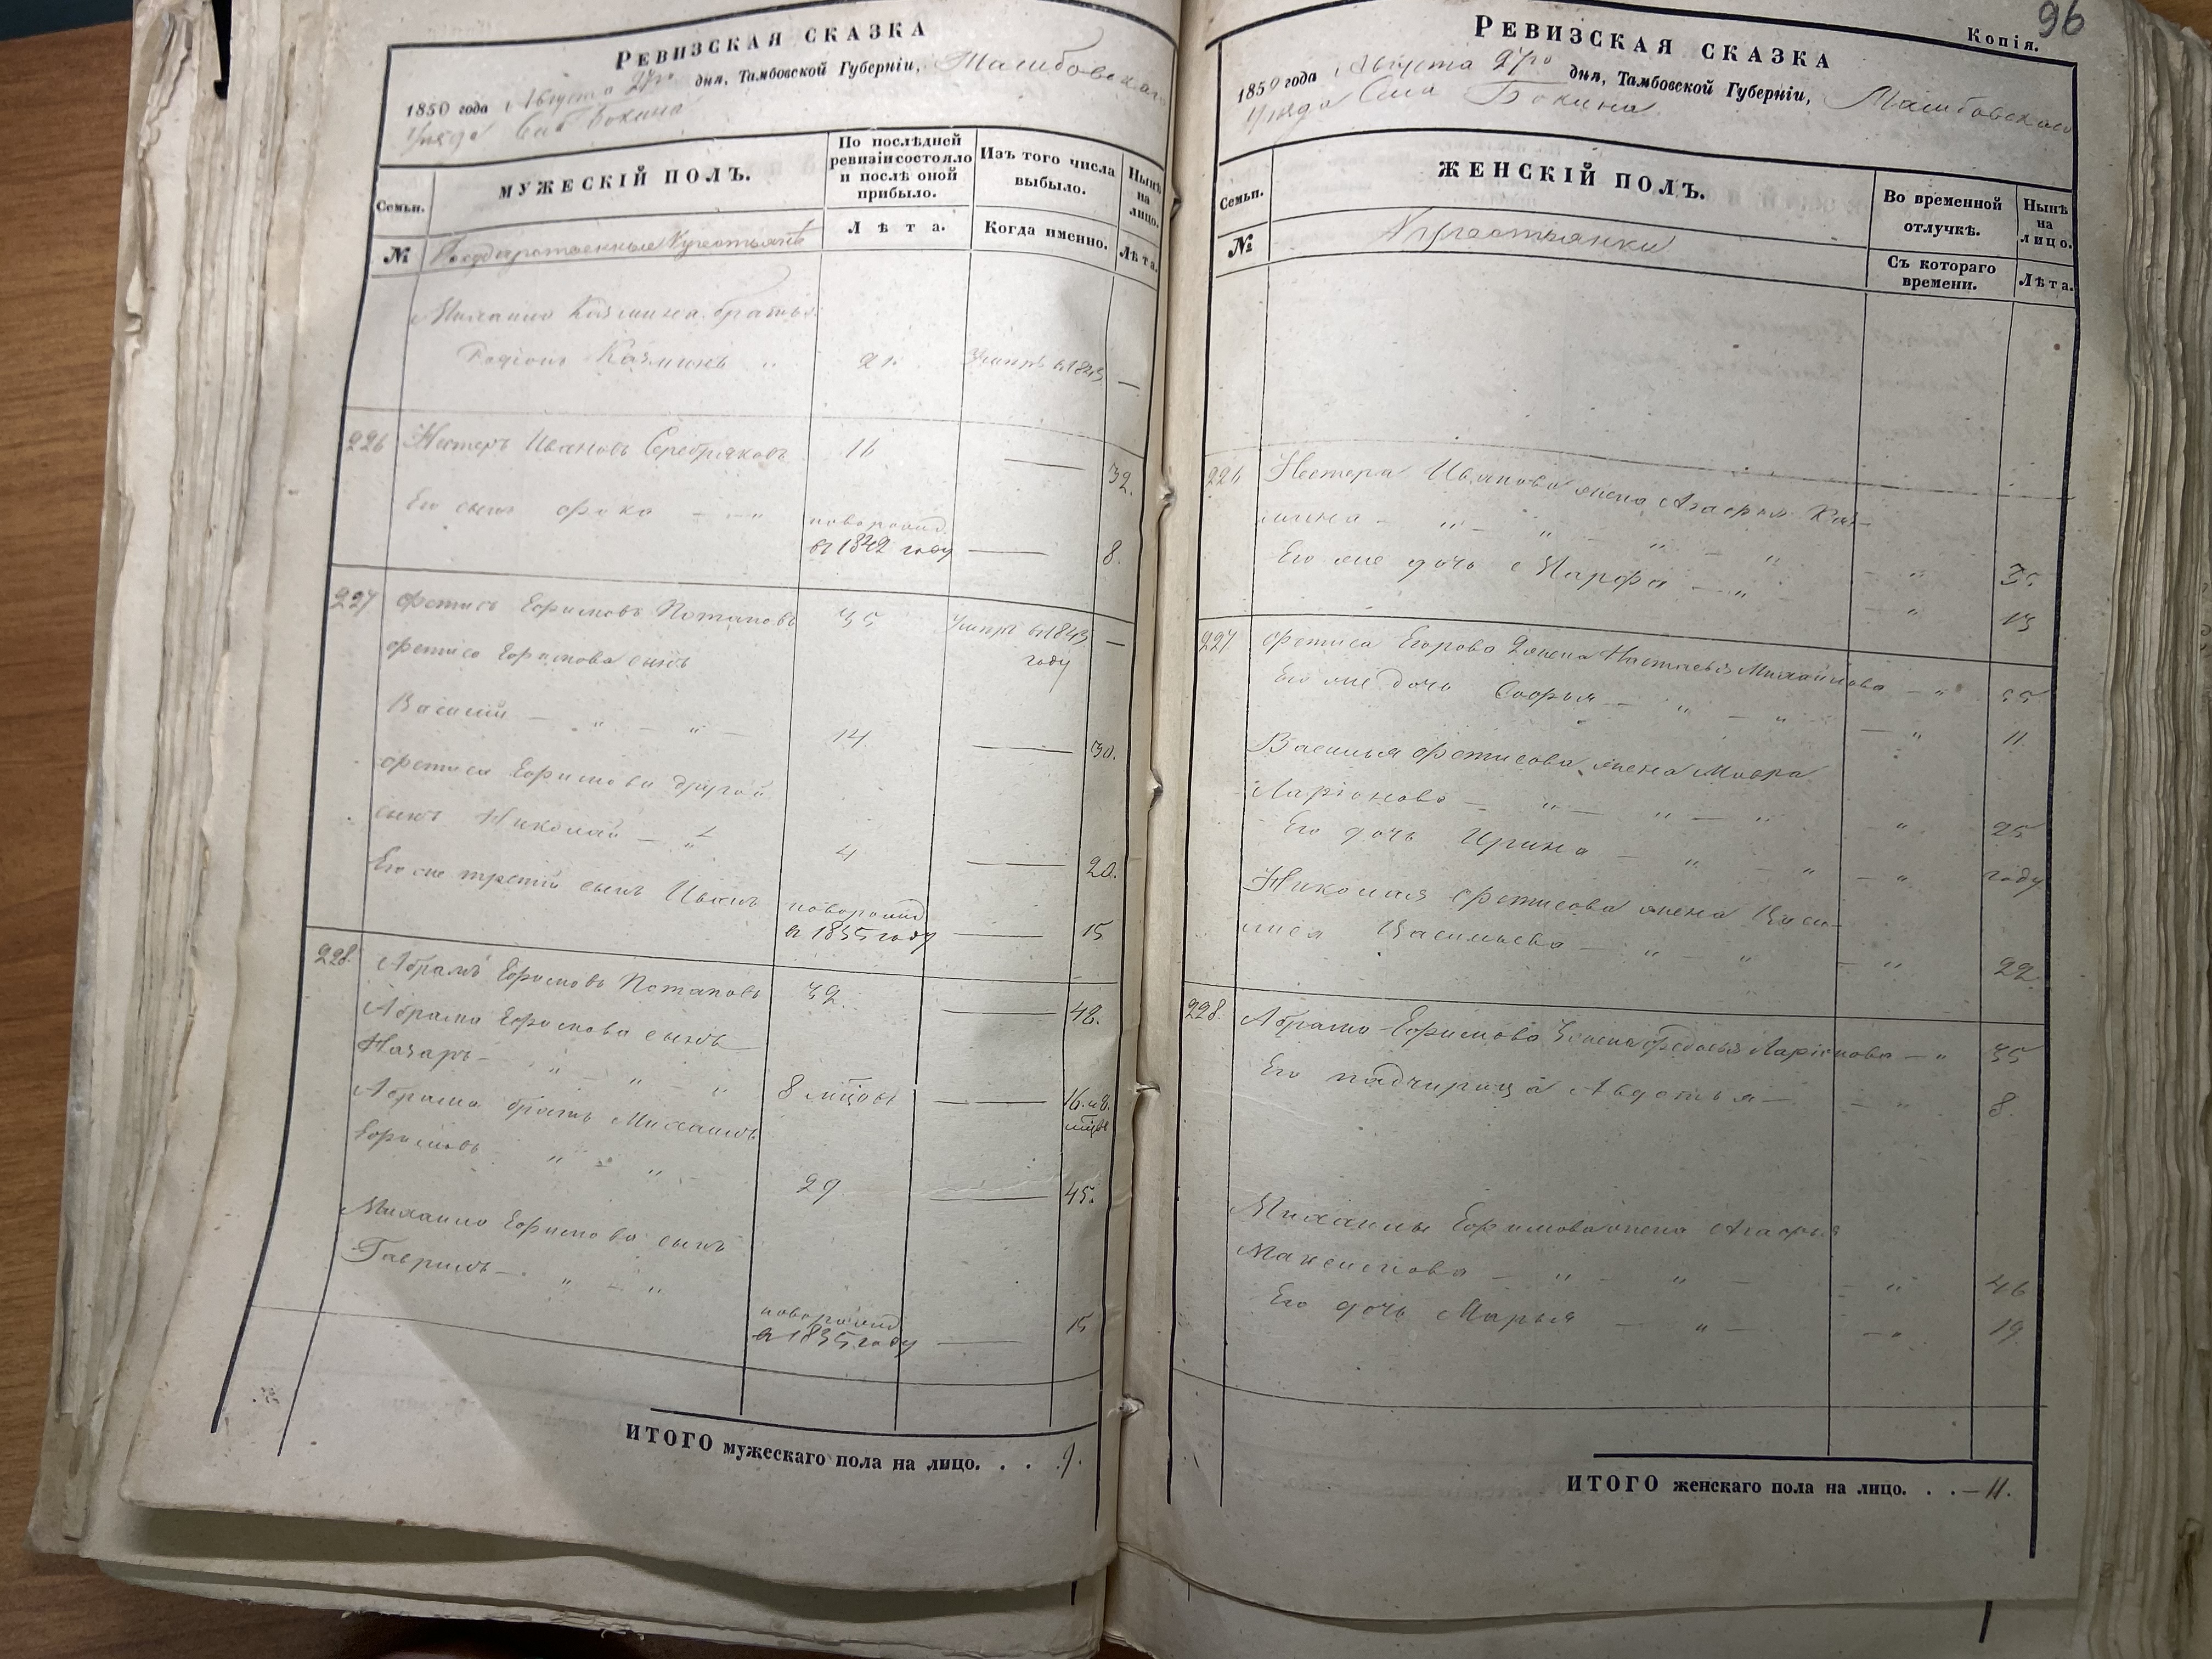 РЕВИЗСКАЯ СКАЗКА
1850 года Августа 27го дня, Тамбовской Губерніи, Тамбовскаго
Уезда Села Бокина
Семьи.
МУЖЕСКІЙ ПОЛЪ.
По послѣдней ревизіи состояло и послѣ оной прибыло.
Изъ того числа выбыло.
Нынѣ на лицо.
№
Государственные Крестьяне
Лѣта.
Когда именно.
Лѣта.
Михаила Казмина братья
Родіонъ Казминъ " 21 Умеръ въ 1843 —
226 Нестеръ Ивановъ Серебряковъ 16 — 32.
Его сынъ Фока — " новорожд.
въ 1842 году — 8.
227 Фетисъ Ефимовъ Потаповъ 35 Умеръ въ 1843 —
году
Фетиса Ефимова сынъ
Василий — " — " — 14. — 30.
Фетиса Ефимова другой
сынъ Николай — " 4 — 20.
Его же третий сынъ Иванъ новорожд.
въ 1835 году — 15
228. Абрамъ Ефимовъ Потаповъ 32. — 48.
Абрама Ефимова сынъ
Назаръ — " — " — " 8 мцовъ — 16. и 8.
мцвъ
Абрама братъ Михаилъ
Ефимовъ " — " — 29 — 45.
Михаила Ефимова сынъ
Гаврилъ — " — " новорожд
въ 1835 году — 15
ИТОГО мужескаго пола на лицо. . . 9.
96
Копія.
РЕВИЗСКАЯ СКАЗКА
1850 года Августа 27го дня, Тамбовской Губерніи, Тамбовскаго
Уезда Села Бокина
Семьи.
ЖЕНСКІЙ ПОЛЪ.
Во временной отлучкѣ.
Нынѣ на лицо.
№
Крестьянки
Съ котораго времени.
Лѣта.
226 Нестера Иванова жена Агафья Каз-
мина — " — " — " — " — " 35
Его же дочь Марфа — " — — " 13
227 Фетиса Егорова 2 жена Настасья Михайлова — " 55
Его же дочь Софья — " — " — " 11
Василья Фетисова жена Мавра
Ларіонова — " — " — " " 25
Его дочь Ирина — " — " — " году
Николая Фетисова жена Васи-
лиса Васильева — " — " — " 22
228. Абрама Ефимова 3 жена Федосья Ларіонова — " 35
Его падчирица Авдотья — — " 8.
Михаилы Ефимова жена Агафья
Максимова — " — " — — " 46
Его дочь Марья — " — — " 19.
ИТОГО женскаго пола на лицо. . . — 11.